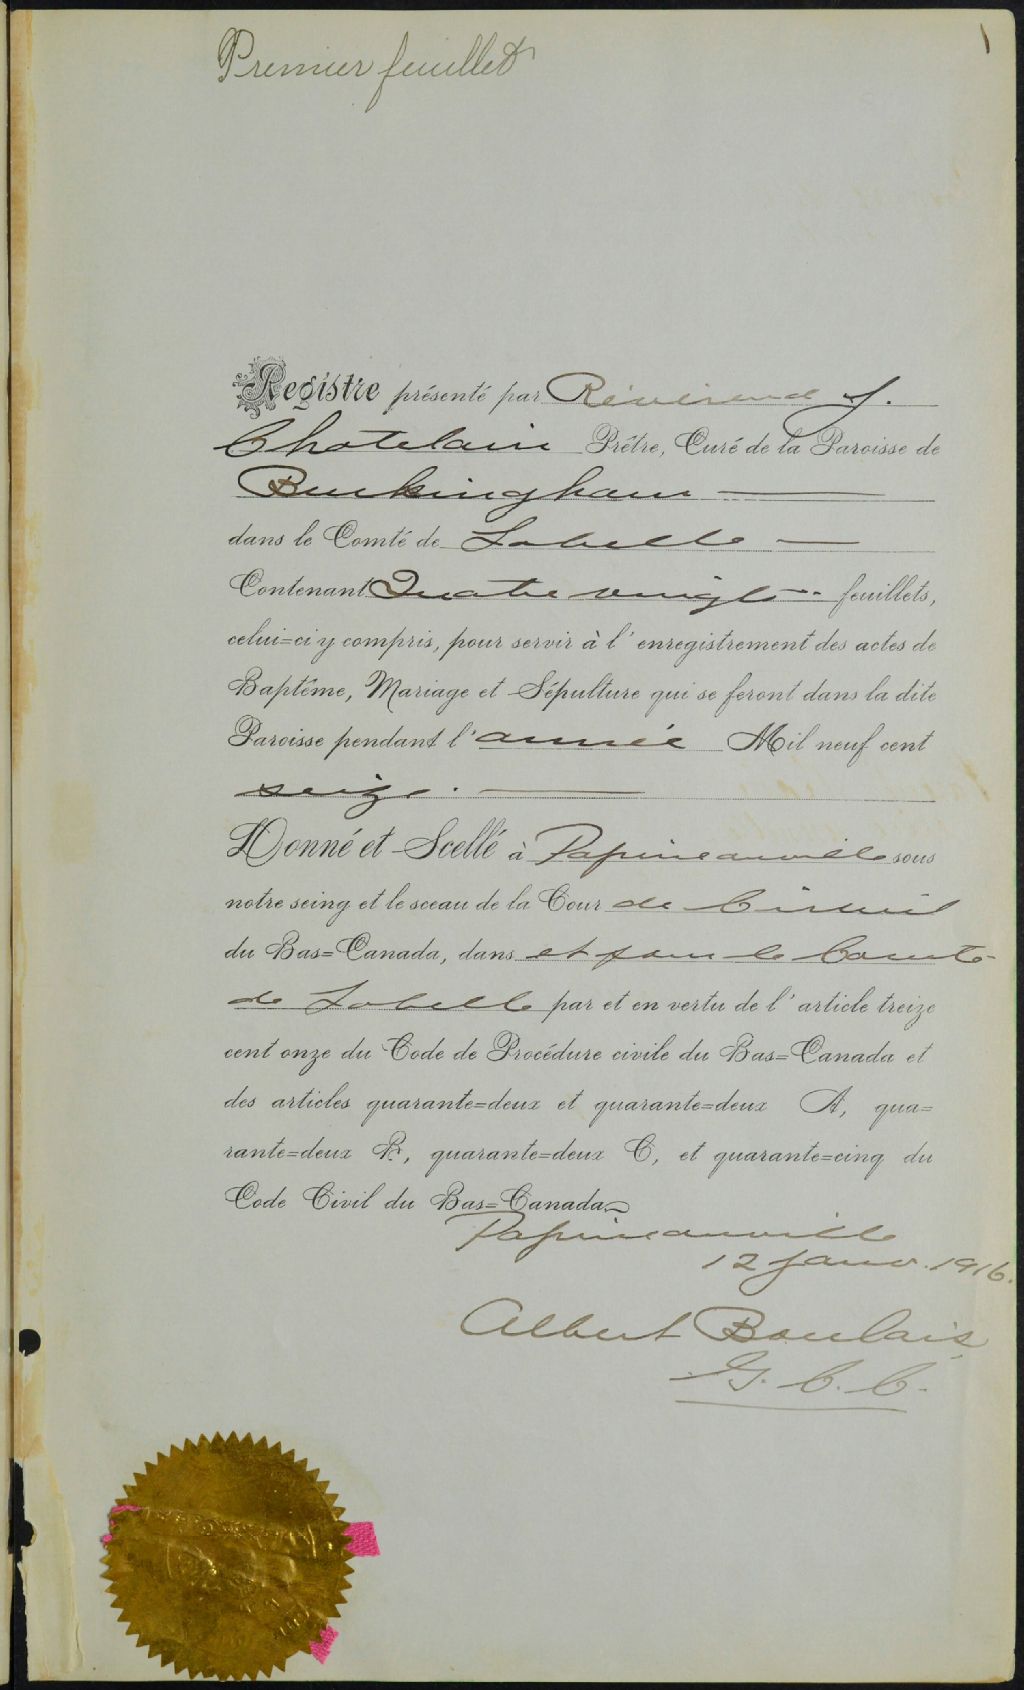 1
Premier feuillet
Registre présenté par Révérend J.
Chatelain Prêtre, Curé de la Paroisse de
Buckingham
dans le Comté de Labelle
Contenant Quatre vingt feuillets,
celui=ci y compris, pour servir à l'enregistrement des actes de
Baptême, Mariage et Sépulture qui se feront dans la dite
Paroisse pendant l'année Mil neuf cent
seize.
Donné et Scellé à Papineauville sous
notre seing et le sceau de la Cour de Circuit
du Bas=Canada, dans et pour le Comté
de Labelle par et en vertu de l'article treize
cent onze du Code de Procédure civile du Bas=Canada et
des articles quarante=deux et quarante=deux A, qua=
rante=deux B, quarante=deux C, et quarante=cinq du
Code Civil du Bas=Canada.
Papineauville
12 janv. 1916.
Albert Boulais,
G. C. C.